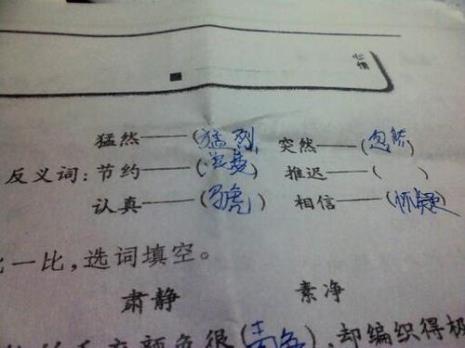 心情
猛然——(猛烈) 突然——(忽然)
反义词:节约——() 推迟——( )
认真——(马虎) 相信——(怀疑)
一比,选词填空。
肃静 素净
颜色很(),却编织得极